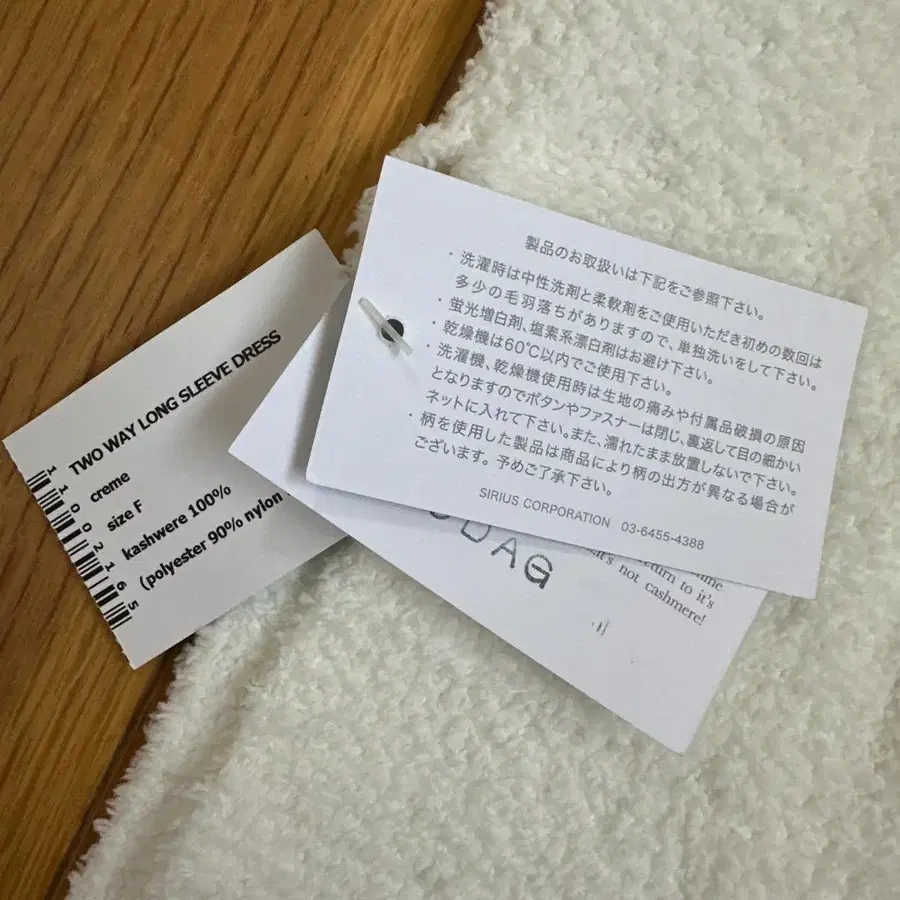 TWO WAY LONG SLEEVE DRESS
creme
size F
kashwere 100%
(polyester 90% nylon
11002165
製品のお取扱いは下記をご参照下さい。
・洗濯時は中性洗剤と柔軟剤をご使用いただき初めの数回は
多少の毛羽落ちがありますので、単独洗いをして下さい。
・蛍光増白剤、塩素系漂白剤はお避け下さい。
・乾燥機は60℃以内でご使用下さい。
・洗濯機、乾燥機使用時は生地の痛みや付属品破損の原因
となりますのでボタンやファスナーは閉じ、裏返して目の細かい
ネットに入れて下さい。また、濡れたまま放置しないで下さい。
・柄を使用した製品は商品により柄の出方が異なる場合が
ございます。予めご了承下さい。
SIRIUS CORPORATION 03-6455-4388
DAG
to it's
not cashmere!